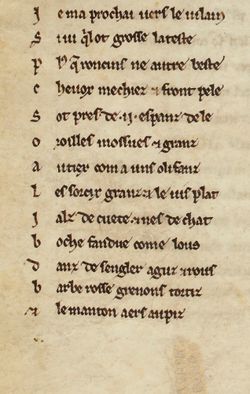 J e ma prochai vers le vilain
S i vi qͥl ot grosse la teste
P lꝰ q̄ roncins ne autre beste
c hevox mechiez ⁊ front pele
S ot pres de .ii. espanz de le
o roilles mossues ⁊ granz
a utiex com a uns olifanz
L es sorcix granz ⁊ le vis plat
I alz de cuete ⁊ nes de chat
b oche fandue come lous
d anz de sengler aguz ⁊ rous
b arbe rosse grenons tortiz
⁊ le manton aers au piz